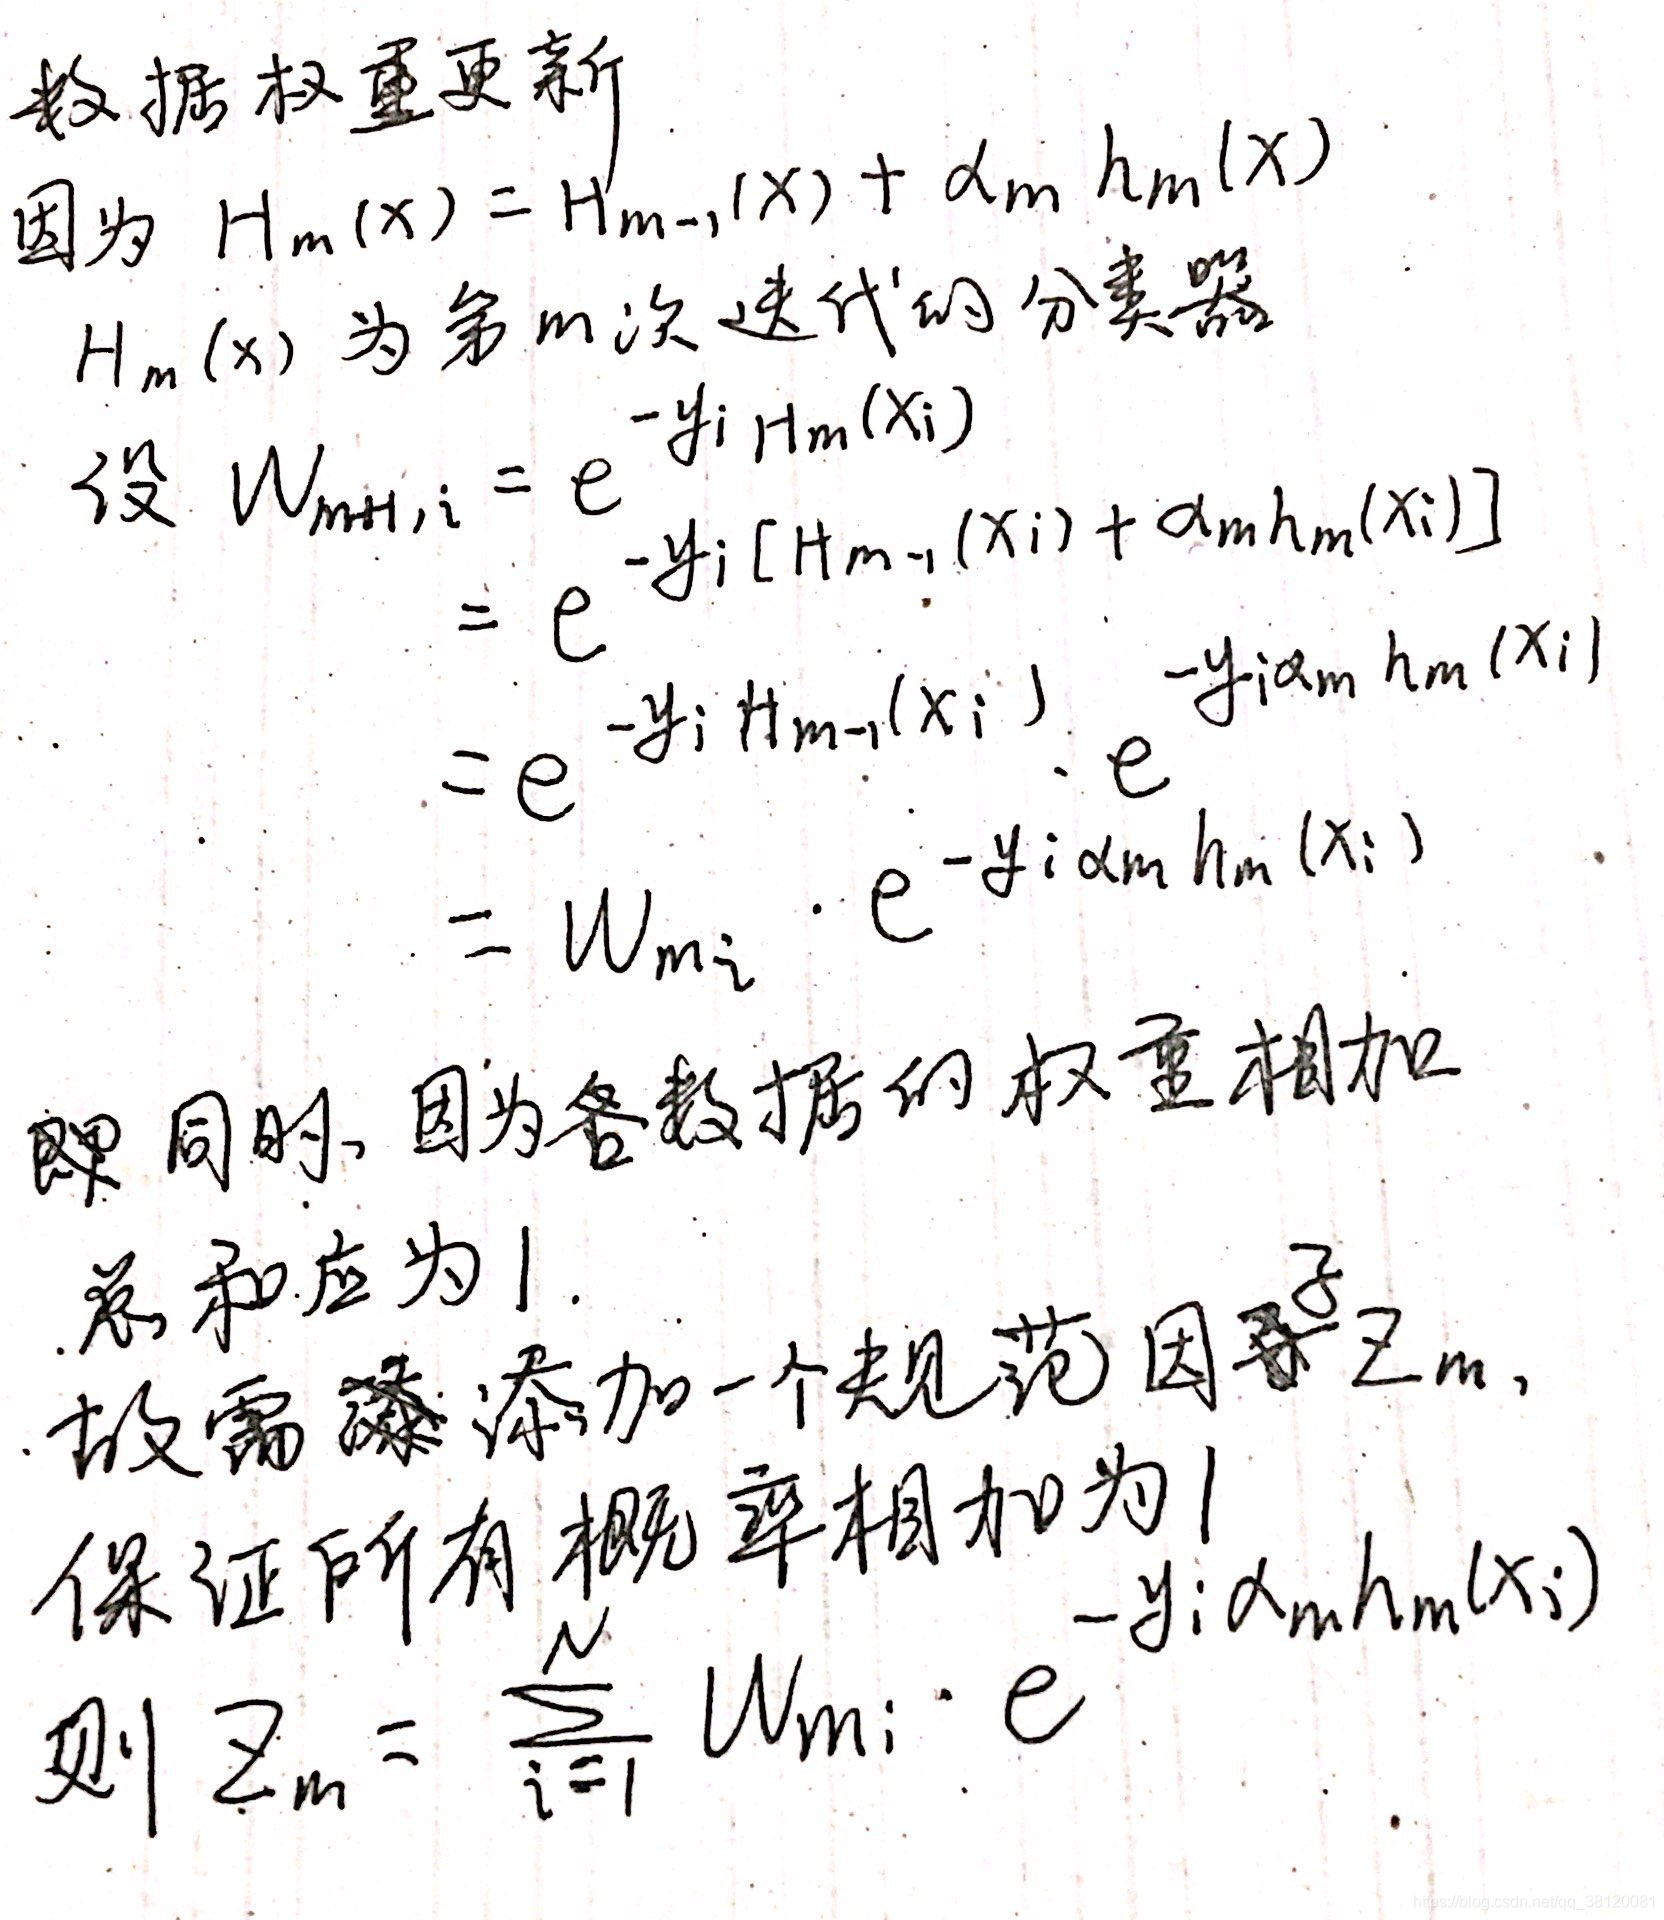 数据权重更新
因为 H_m(x) = H_{m-1}(x) + α_m h_m(x)
H_m(x) 为第m次迭代的分类器
设 W_{m+1,i} = e^{-y_i H_m(x_i)}
= e^{-y_i[H_{m-1}(x_i) + α_m h_m(x_i)]}
= e^{-y_i H_{m-1}(x_i)} · e^{-y_i α_m h_m(x_i)}
= W_{mi} · e^{-y_i α_m h_m(x_i)}
同时、因为各数据的权重相加
总和应为1.
故需添加一个规范因子Z_m,
保证所有概率相加为1
则 Z_m = \sum_{i=1}^{N} W_{mi} · e^{-y_i α_m h_m(x_i)}
https://blog.csdn.net/qq_38120081